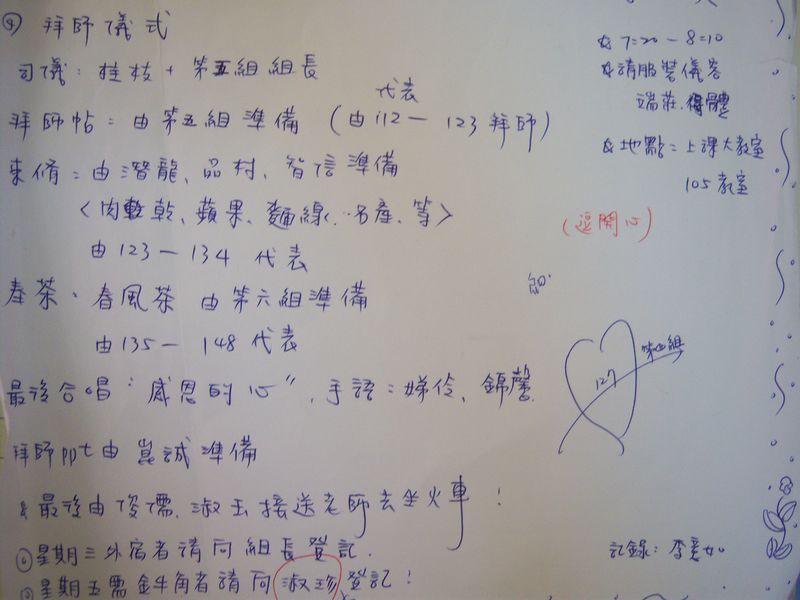 ④ 拜師儀式
司儀：桂枝 + 第五組組長
代表
拜師帖：由第五組準備 (由112－123拜師)
束脩：由潛龍、品村、智信準備
<肉乾、蘋果、麵線、名產、等>
由123－134 代表
奉茶、春風茶 由第六組準備
由135－148 代表
最後合唱"感恩的心"，手語：娣伶、錦馨
拜師ppt由 崑誠準備
& 最後由俊儒、淑玉接送老師去坐火車！
◎星期三外宿者請向組長登記.
◎星期五需金牛角者請向淑珍登記！
& 7=20－8=10
& 請服裝儀容
端莊、得體
& 地點：上課大教室
105教室
(逗開心)
127
第五組
記錄：李